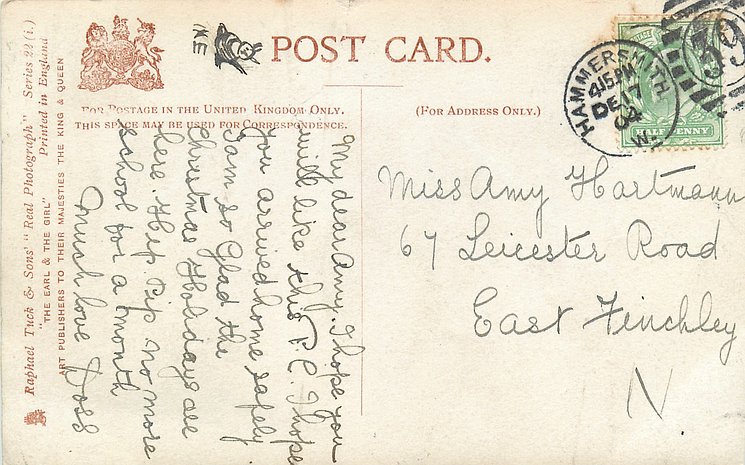 POST CARD.
FOR POSTAGE IN THE UNITED KINGDOM ONLY.
THIS SPACE MAY BE USED FOR CORRESPONDENCE.
(FOR ADDRESS ONLY.)
Raphael Tuck & Sons' "Real Photograph" Series 22 (i.)
"THE EARL & THE GIRL" Printed in England
ART PUBLISHERS TO THEIR MAJESTIES THE KING & QUEEN
ME
HAMMERSMITH
4.15 PM
DE 17
04
W.
39
POSTAGE
HALF PENNY
My dear Amy. I hope you
will like this P.C. I hope
you arrived home safely
I am so Glad the
Christmas Holidays are
here. Hip Pip no more
school for a month
Much love Doss
Miss Amy Hartmann
67 Leicester Road
East Finchley
N